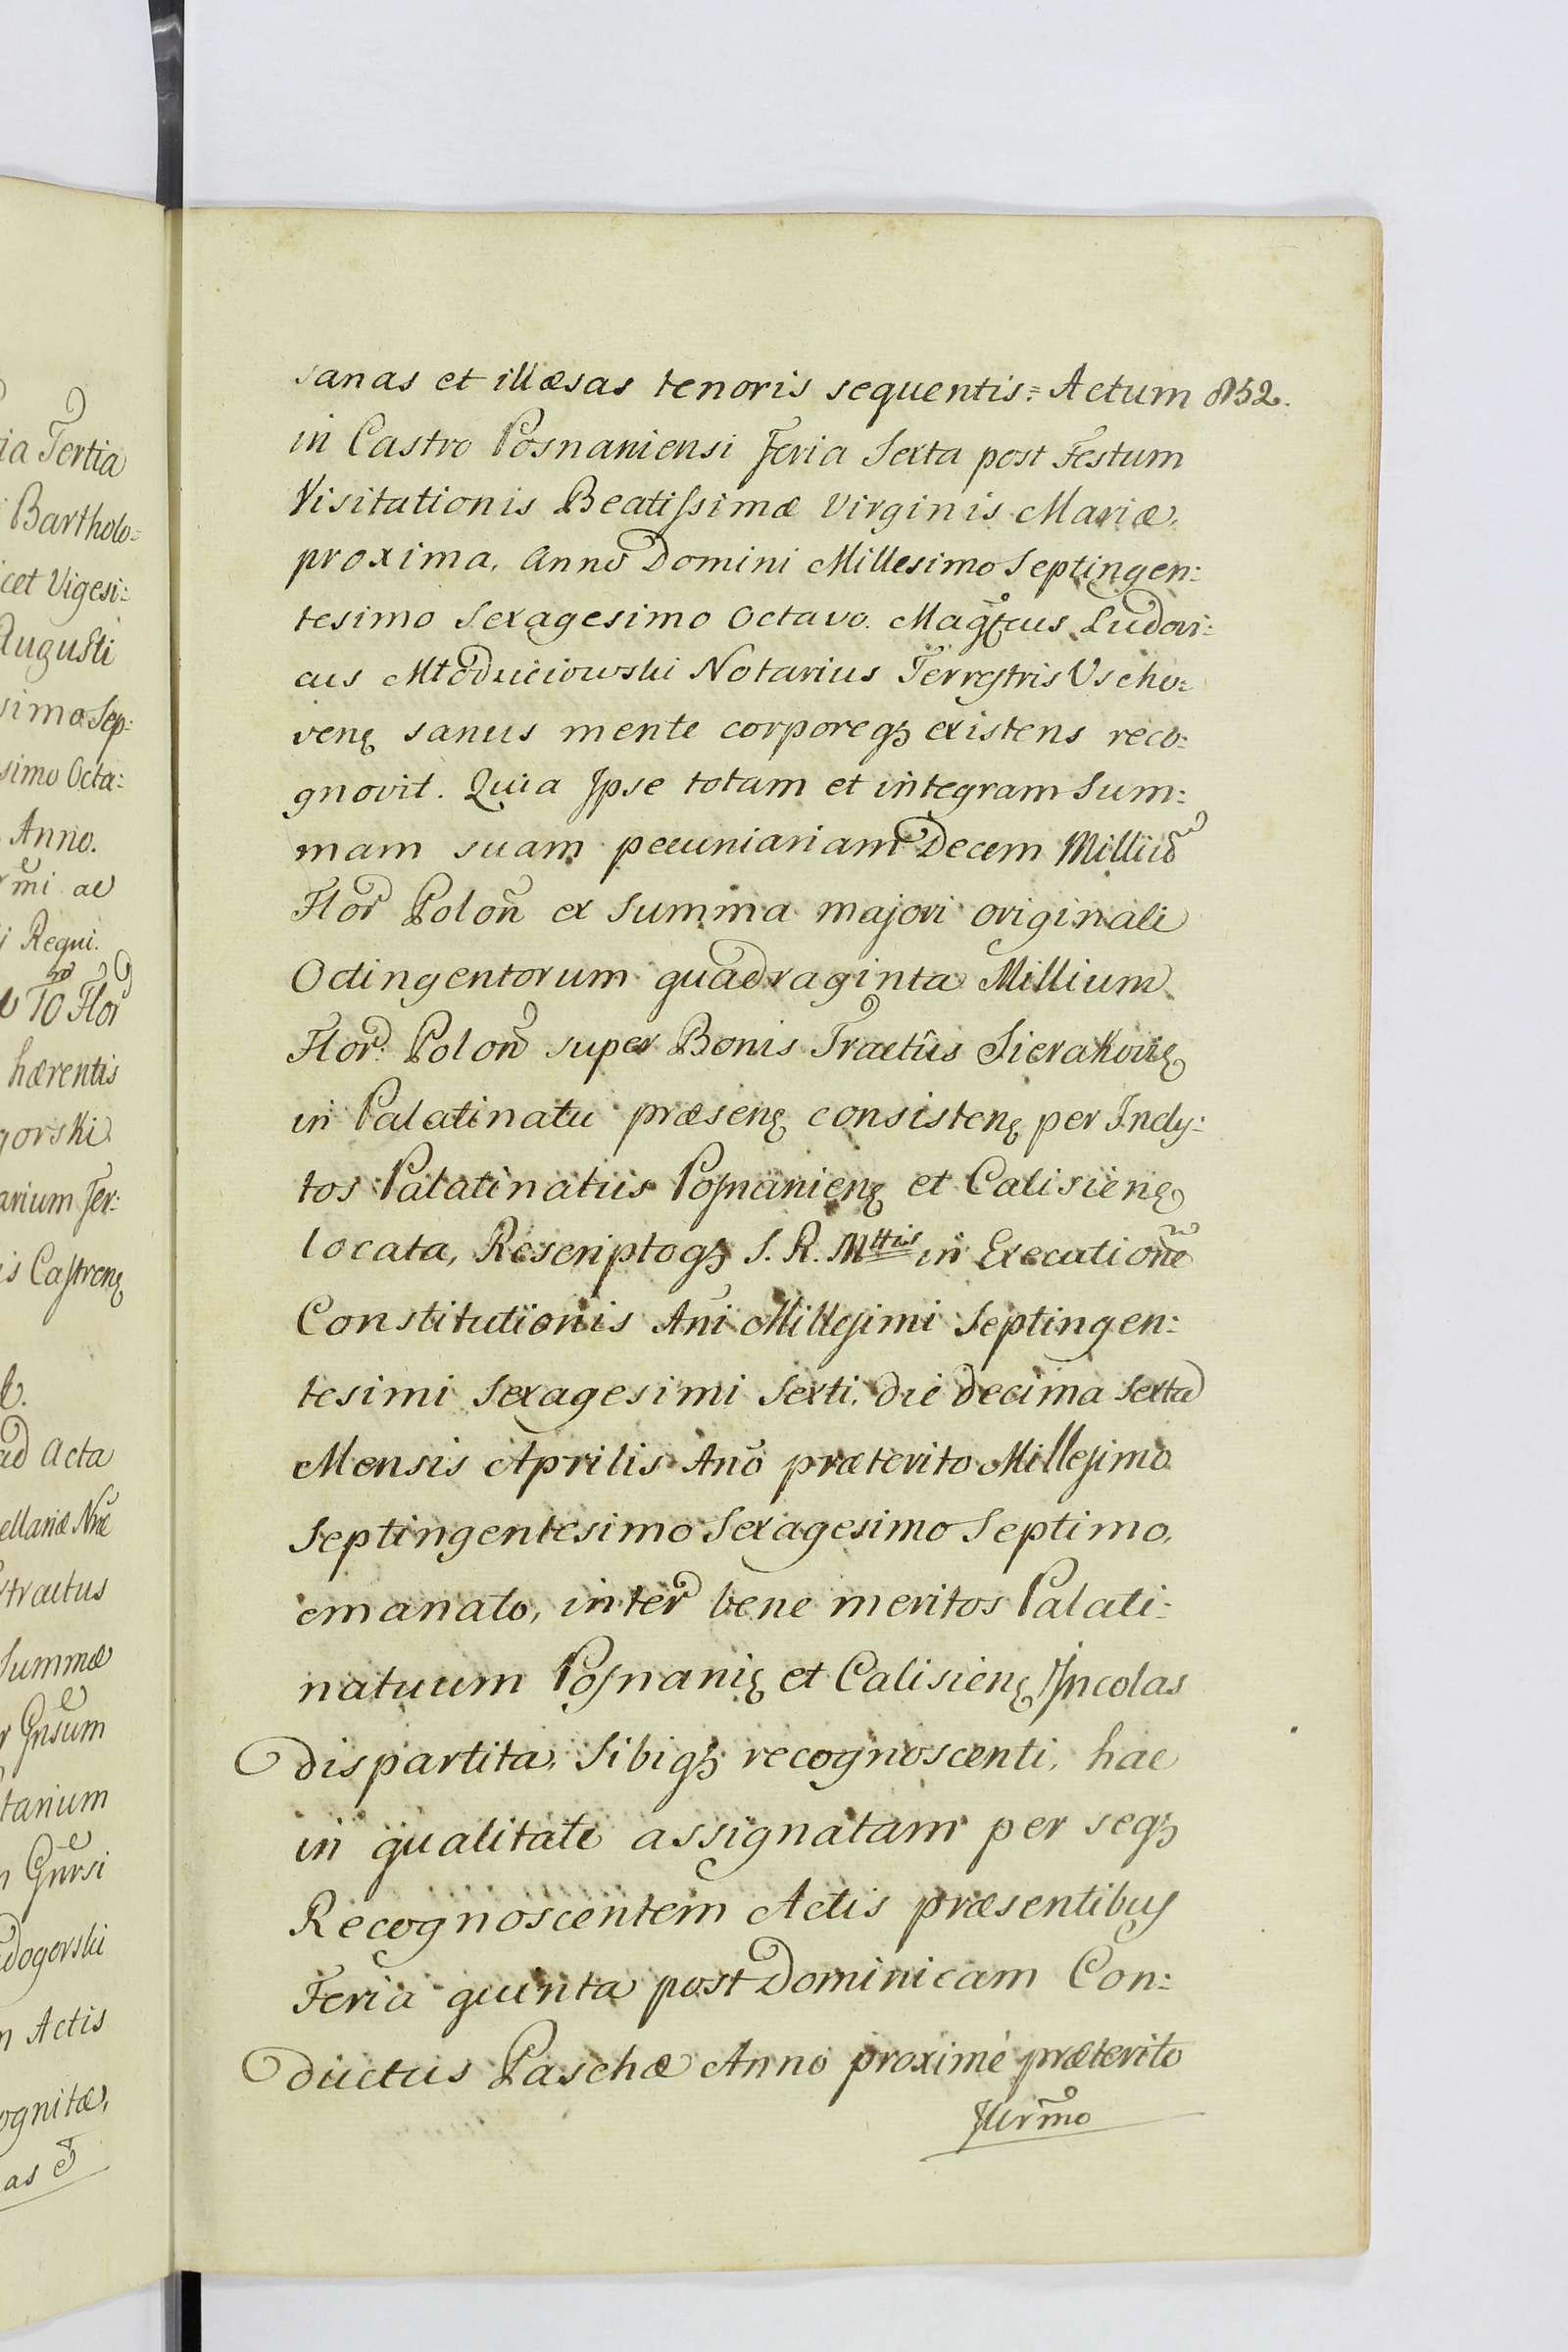 ia Tertia
Bartholo=
cet Vigesi:
Augusti
simo Sep:
simo Octa:
Anno.
mi ac
Regni.
10 Flor
hærentis
gorski
arium Ter:
is Castren
ad Acta
ellariæ Nræ
tractus
Summæ
Gnsum
tarium
Gnrsi
dogorski
n Actis
ognitæ,
as et
sanas et illæsas tenoris sequentis = Actum 852.
in Castro Posnaniensi Feria Sexta post Festum
Visitationis Beatissimæ Virginis Mariæ,
proxima, Anno Domini Millesimo Septingen:
tesimo Sexagesimo Octavo. Magcus Ludovi:
cus Młoduiciowski Notarius Terrestris Vscho:
ven sanus mente corporeq existens reco:
gnovit. Quia Ipse totam et integram Sum:
mam suam pecuniariam Decem Milliu
Flor Polon ex Summa majori originali
Octingentorum quadraginta Millium
Flor. Polon super Bonis Tractûs Sierakovie
in Palatinatu præsen consisten per Incly:
tos Palatinatûs Posnanien et Calisien
locata, Rescriptoq S. R. Mttis in Executione
Constitutionis Ani Millesimi Septingen:
tesimi Sexagesimi Sexti, die decima Sexta
Mensis Aprilis Ano præterito Millesimo
Septingentesimo Sexagesimo Septimo,
emanato, inter bene meritos Palati:
natuum Posnani et Calisien Incolas
dispartita, Sibiq recognoscenti, hac
in qualitate assignatam per seq
Recognoscentem Actis præsentibus
Feria quinta post Dominicam Con:
ductus Paschæ Anno proximé præterito
Jurmo